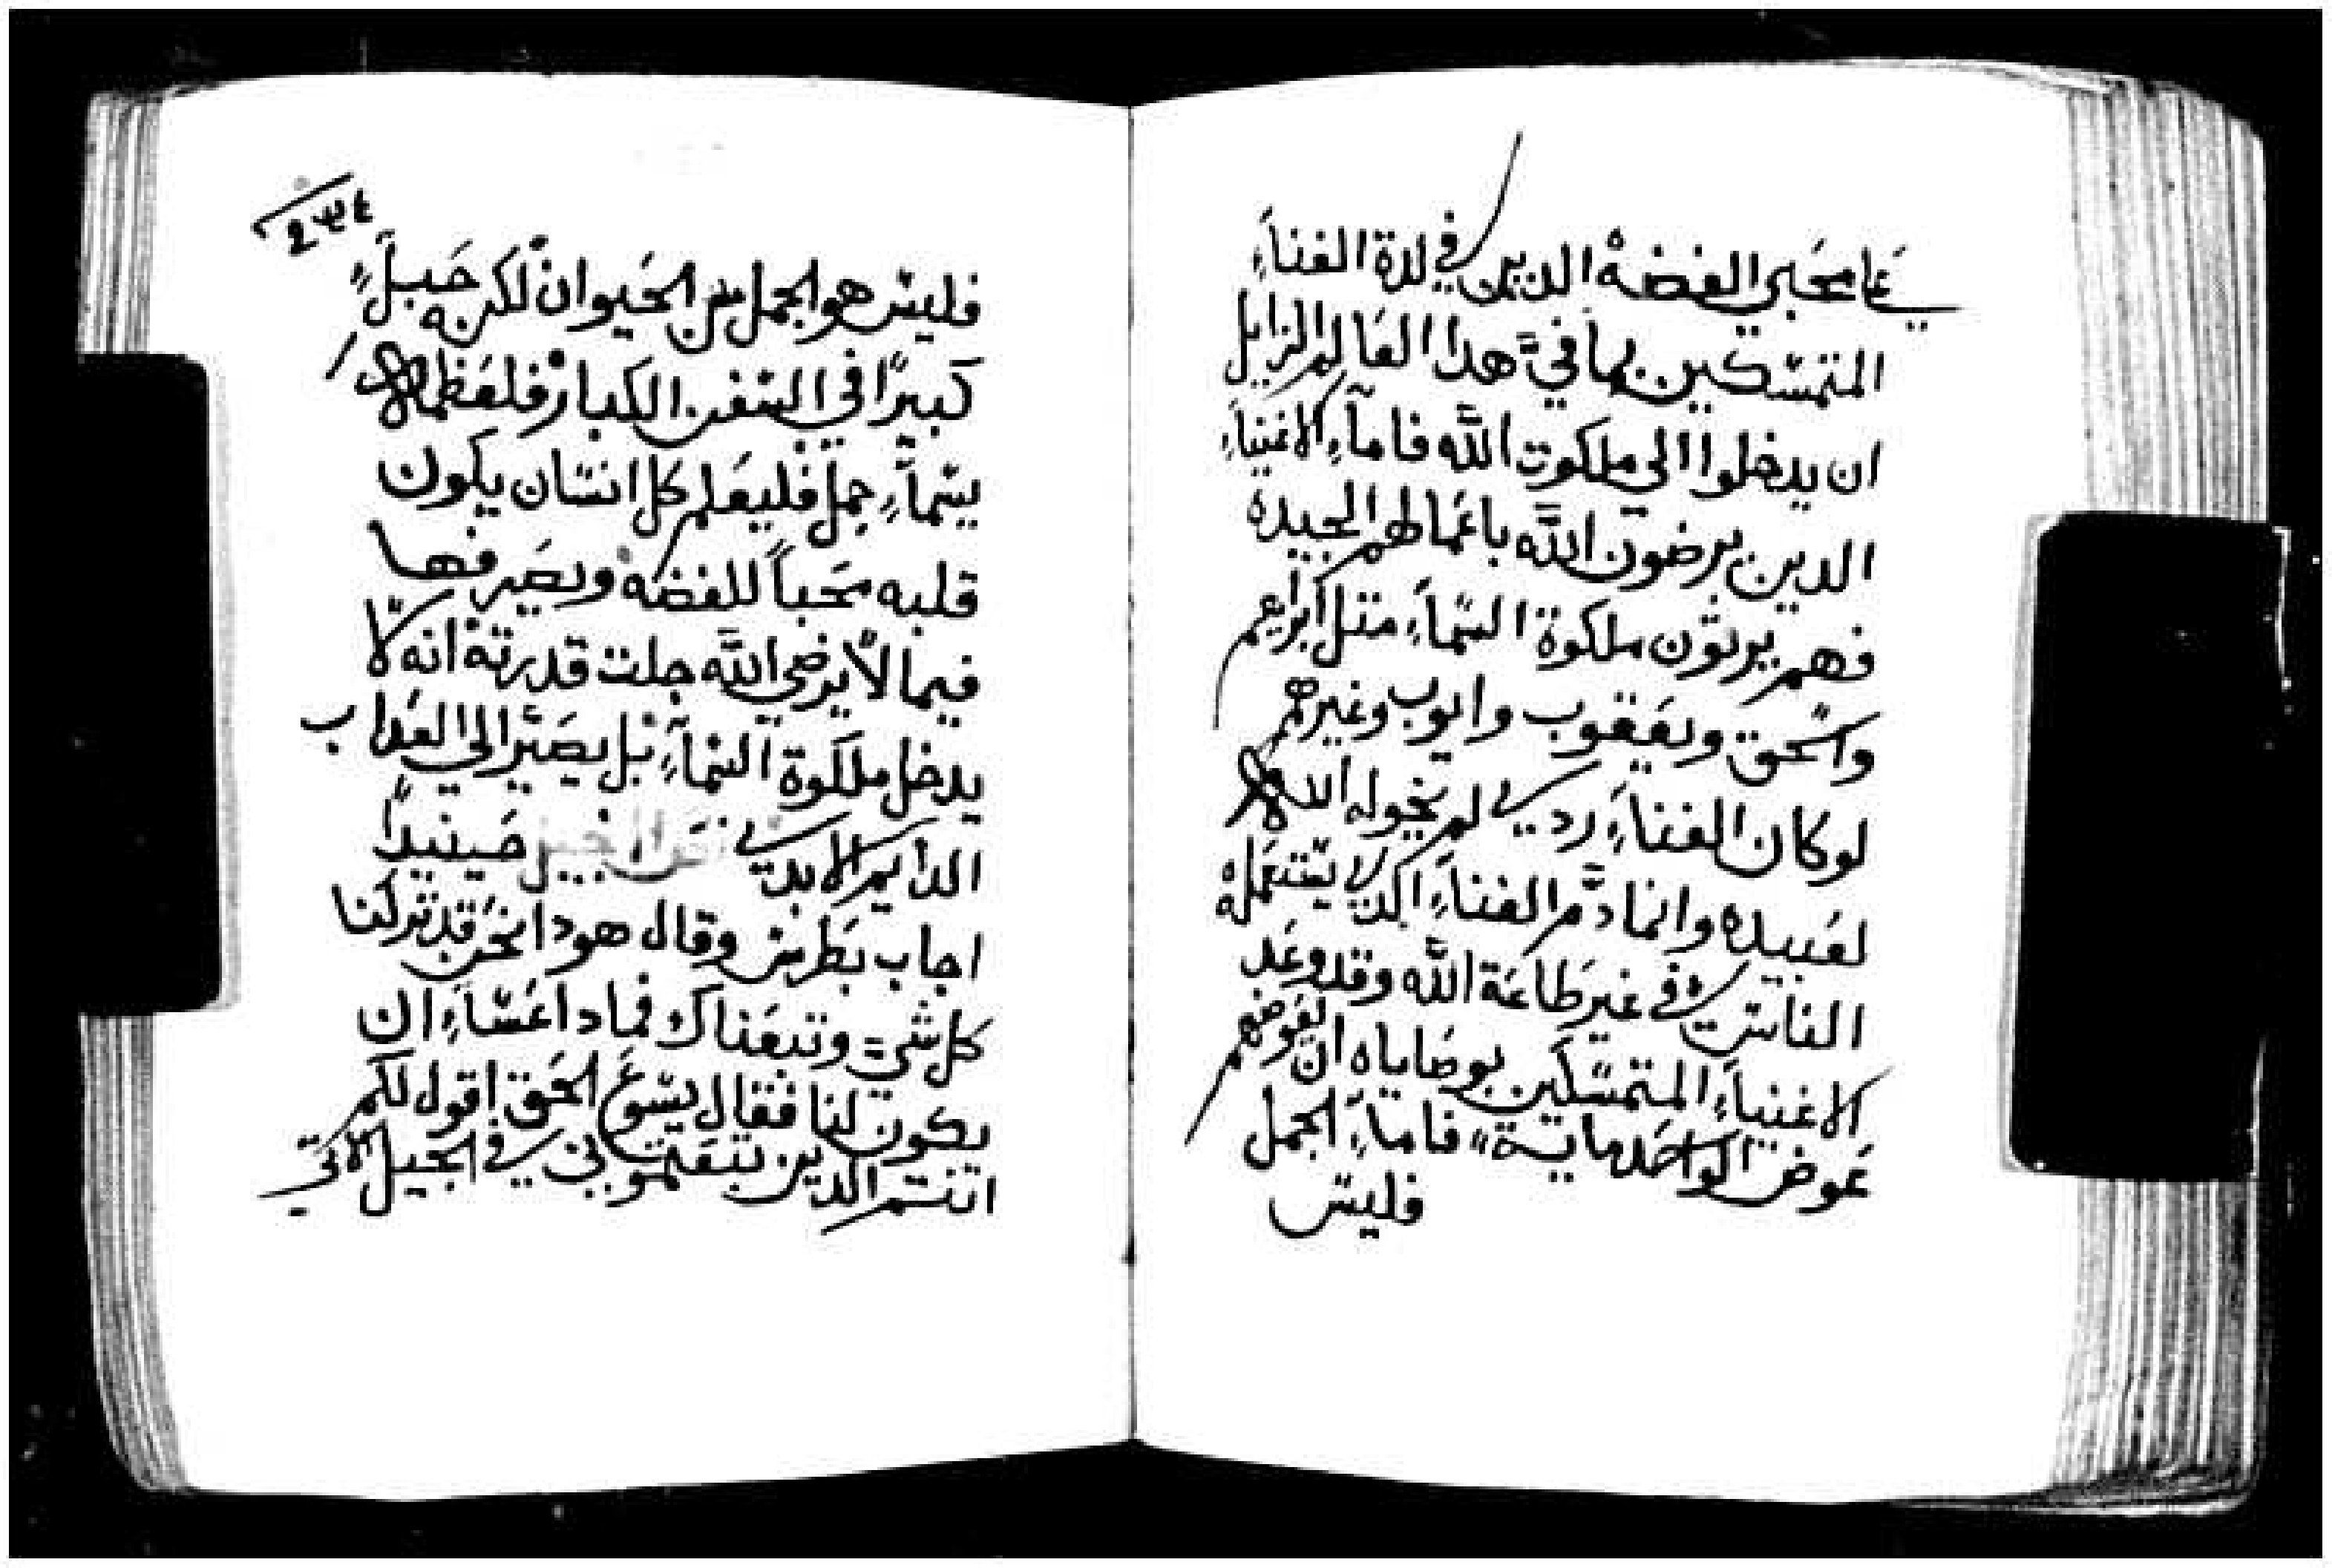 على محبي الفضة الدين في لدة الغناءِ
المتمسكين بما في هدا العالم الزايل
ان يدخلوا الي ملكوت الله فاماءِ الاغنياءِ
الدين يرضون الله باعمالهم الجيدة
فهم يرتون ملكوة السماءِ متل ابراهيم
واسحق ويعقوب وايوب وغيرهم
لوكان الغناءِ ردي لم يخوله الله
لعبيده وانما دم الغناءِ الدي يستعمله
الناس في غير طاعة الله وقد وعد
الاغنياءِ المتمسكين بوصاياه ان يعوضهم
عوض الواحد ماية فاماءِ الجمل
فليس
٢٣٤
فليس هو الجمل من الحيوان لكنه حبلٍ
كبيرًا في السفن الكبار فلعظمه
يسماءِ جمل فليعلم كل انسان يكون
قلبه محباً للفضه ويصير فها
فيما لا يرضي الله جلت قدرته انه لا
يدخل ملكوة السماءِ بل يصير الي العداب
الدايم الابدي حينيدٍ
اجاب بطرس وقال هودا نحن قد تركنا
كل شي وتبعناك فمادا عساءِ ان
يكون لنا فقال يسوع الحق اقول لكم
انتم الدين تبعتموني في الجيل الاتي